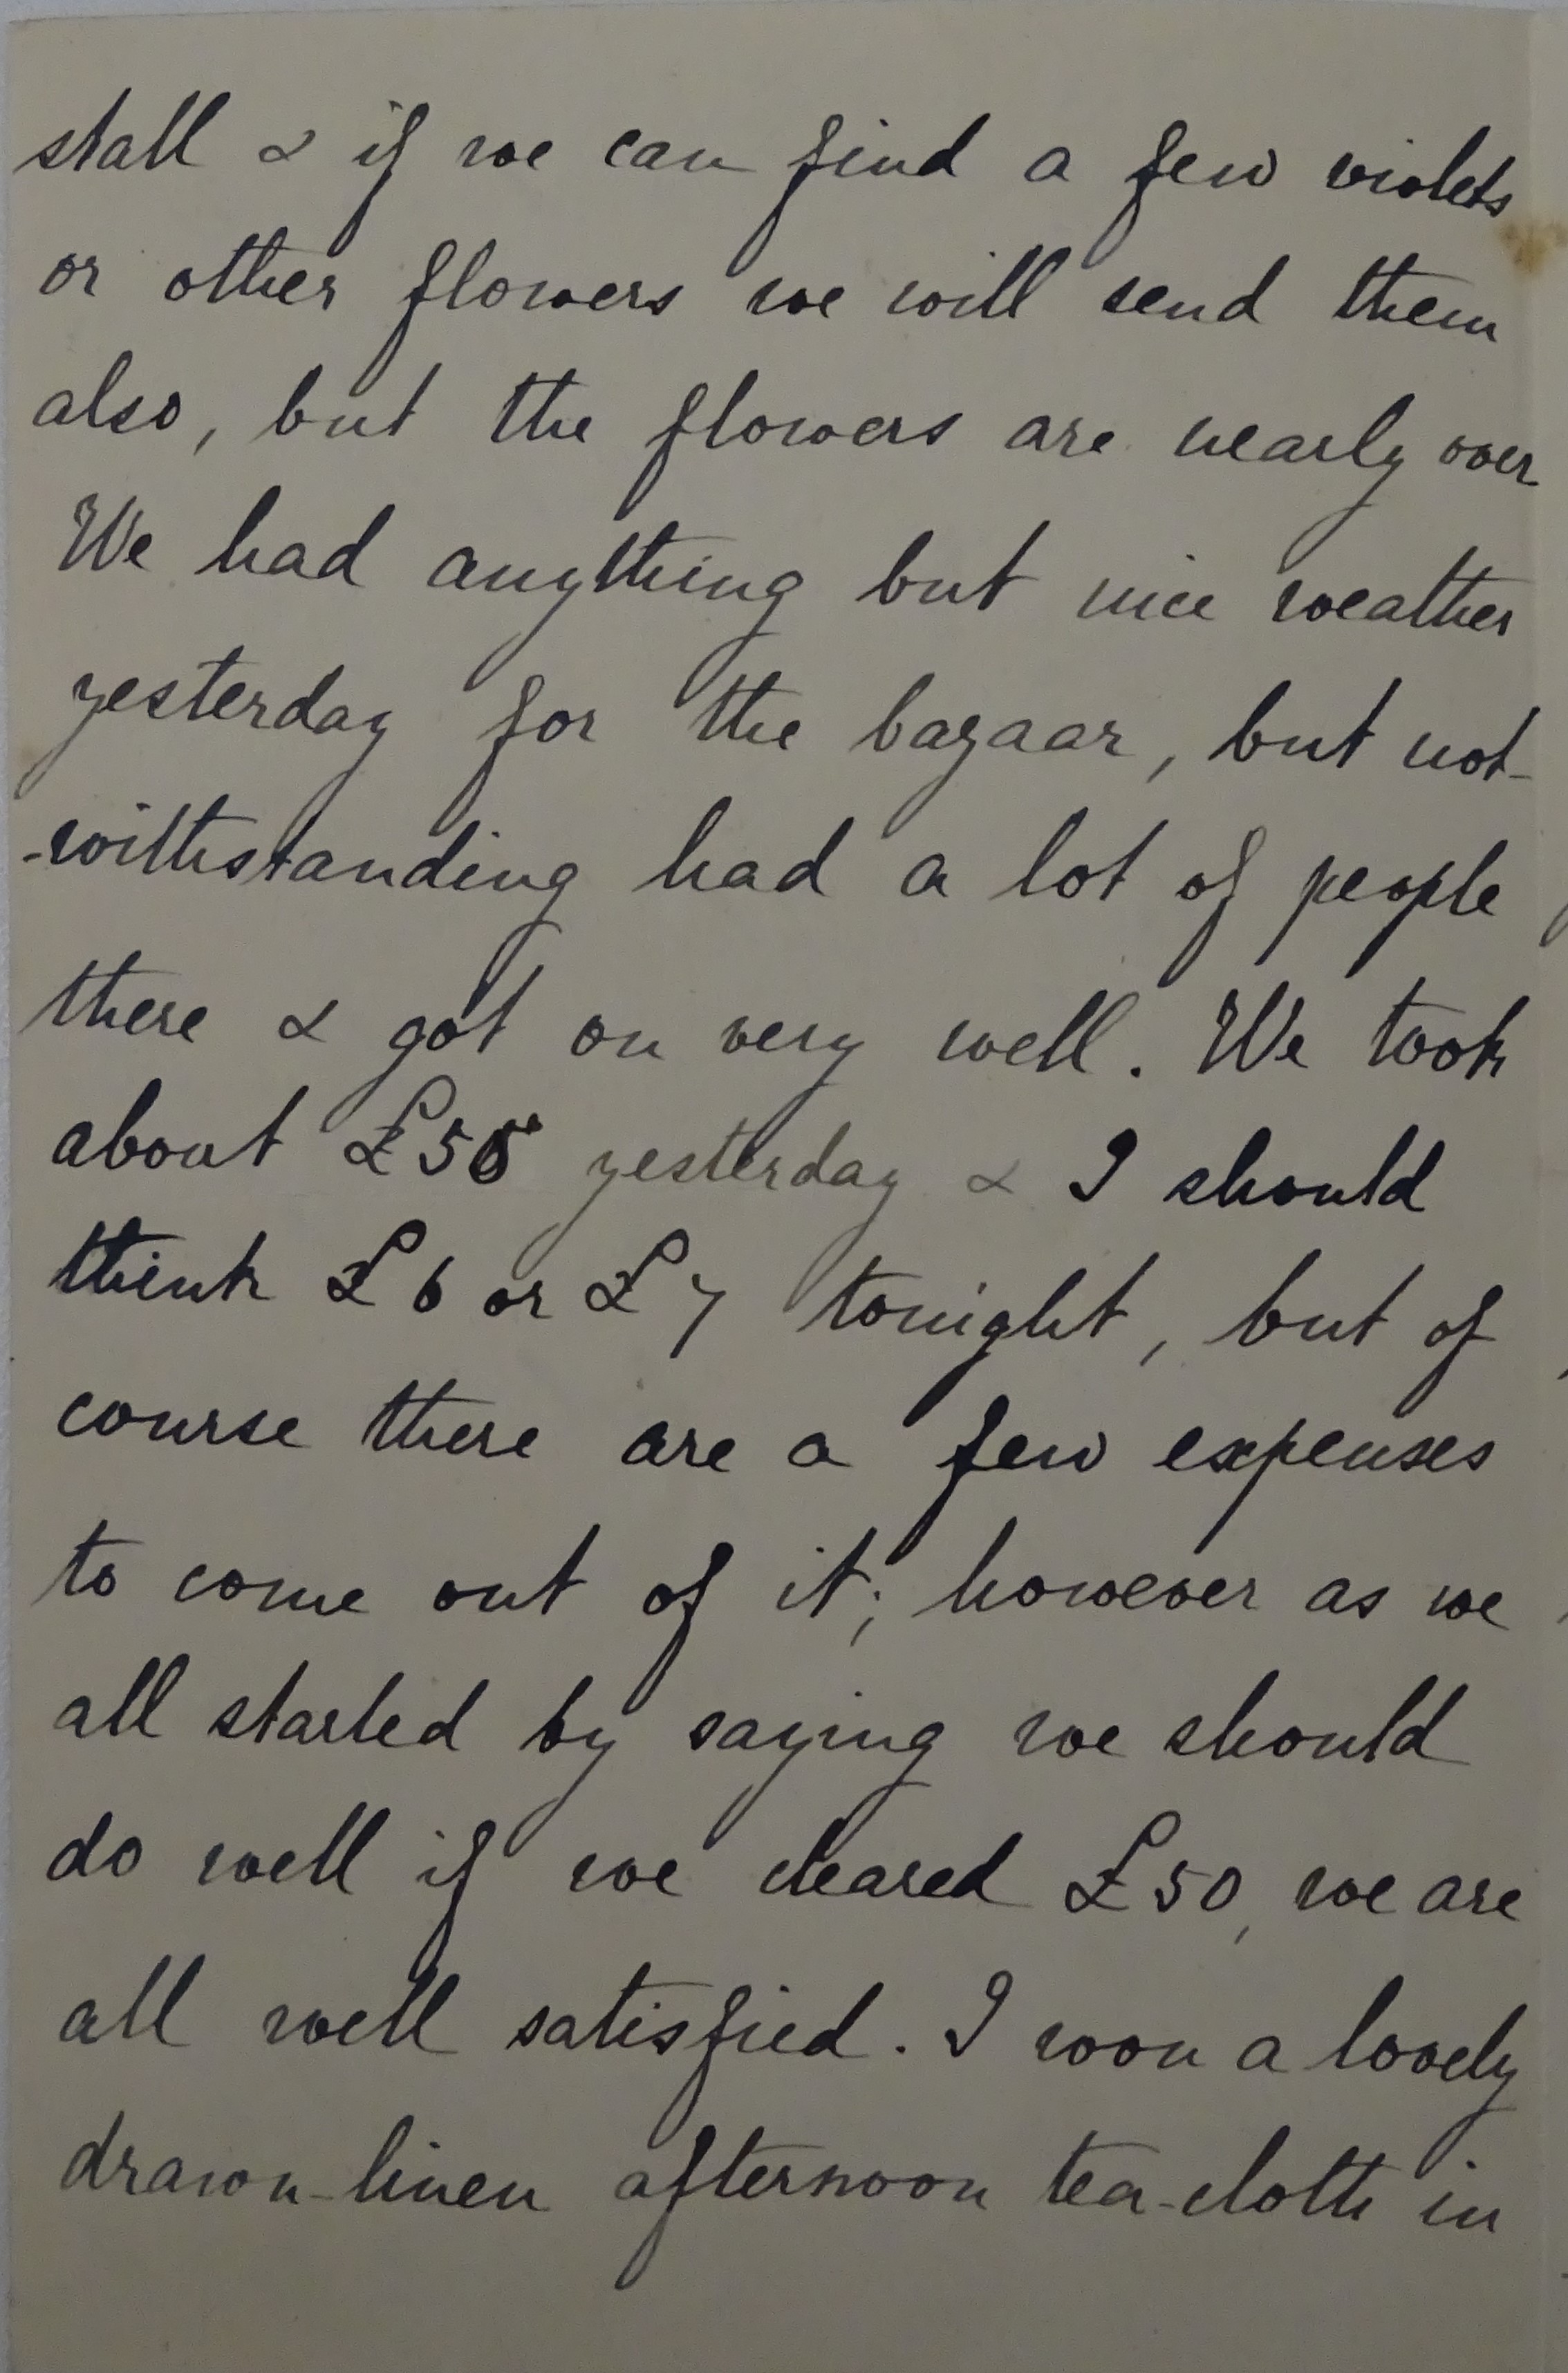 stall & if we can find a few violets
or other flowers we will send them
also, but the flowers are nearly over
We had anything but nice weather
yesterday for the bazaar, but not-
-withstanding had a lot of people
there & got on very well. We took
about £55 yesterday & I should
think £6 or £7 tonight, but of
course there are a few expenses
to come out of it; however as we
all started by saying we should
do well if we cleared £50, we are
all well satisfied. I won a lovely
drawn-linen afternoon tea-cloth in